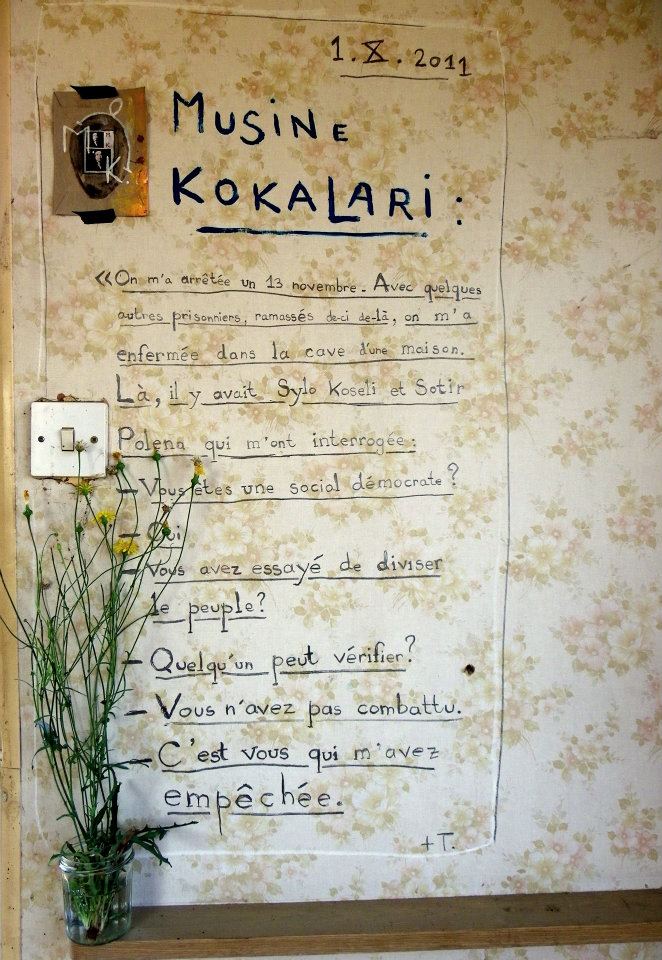 1.X.2011
M K.
MUSINE
KOKALARI :
«On m'a arrêtée un 13 novembre. Avec quelques
autres prisonniers, ramassés de-ci de-là, on m'a
enfermée dans la cave d'une maison.
Là, il y avait Sylo Koseli et Sotir
Polena qui m'ont interrogée :
– Vous êtes une social démocrate ?
– Oui
– Vous avez essayé de diviser
le peuple ?
– Quelqu'un peut vérifier ?
– Vous n'avez pas combattu.
– C'est vous qui m'avez
empêchée.
+T.